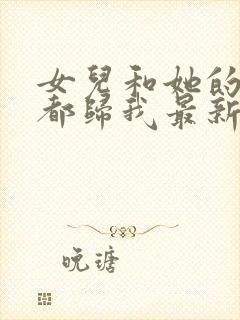 女兒和她的
都歸我最新
晚瑭